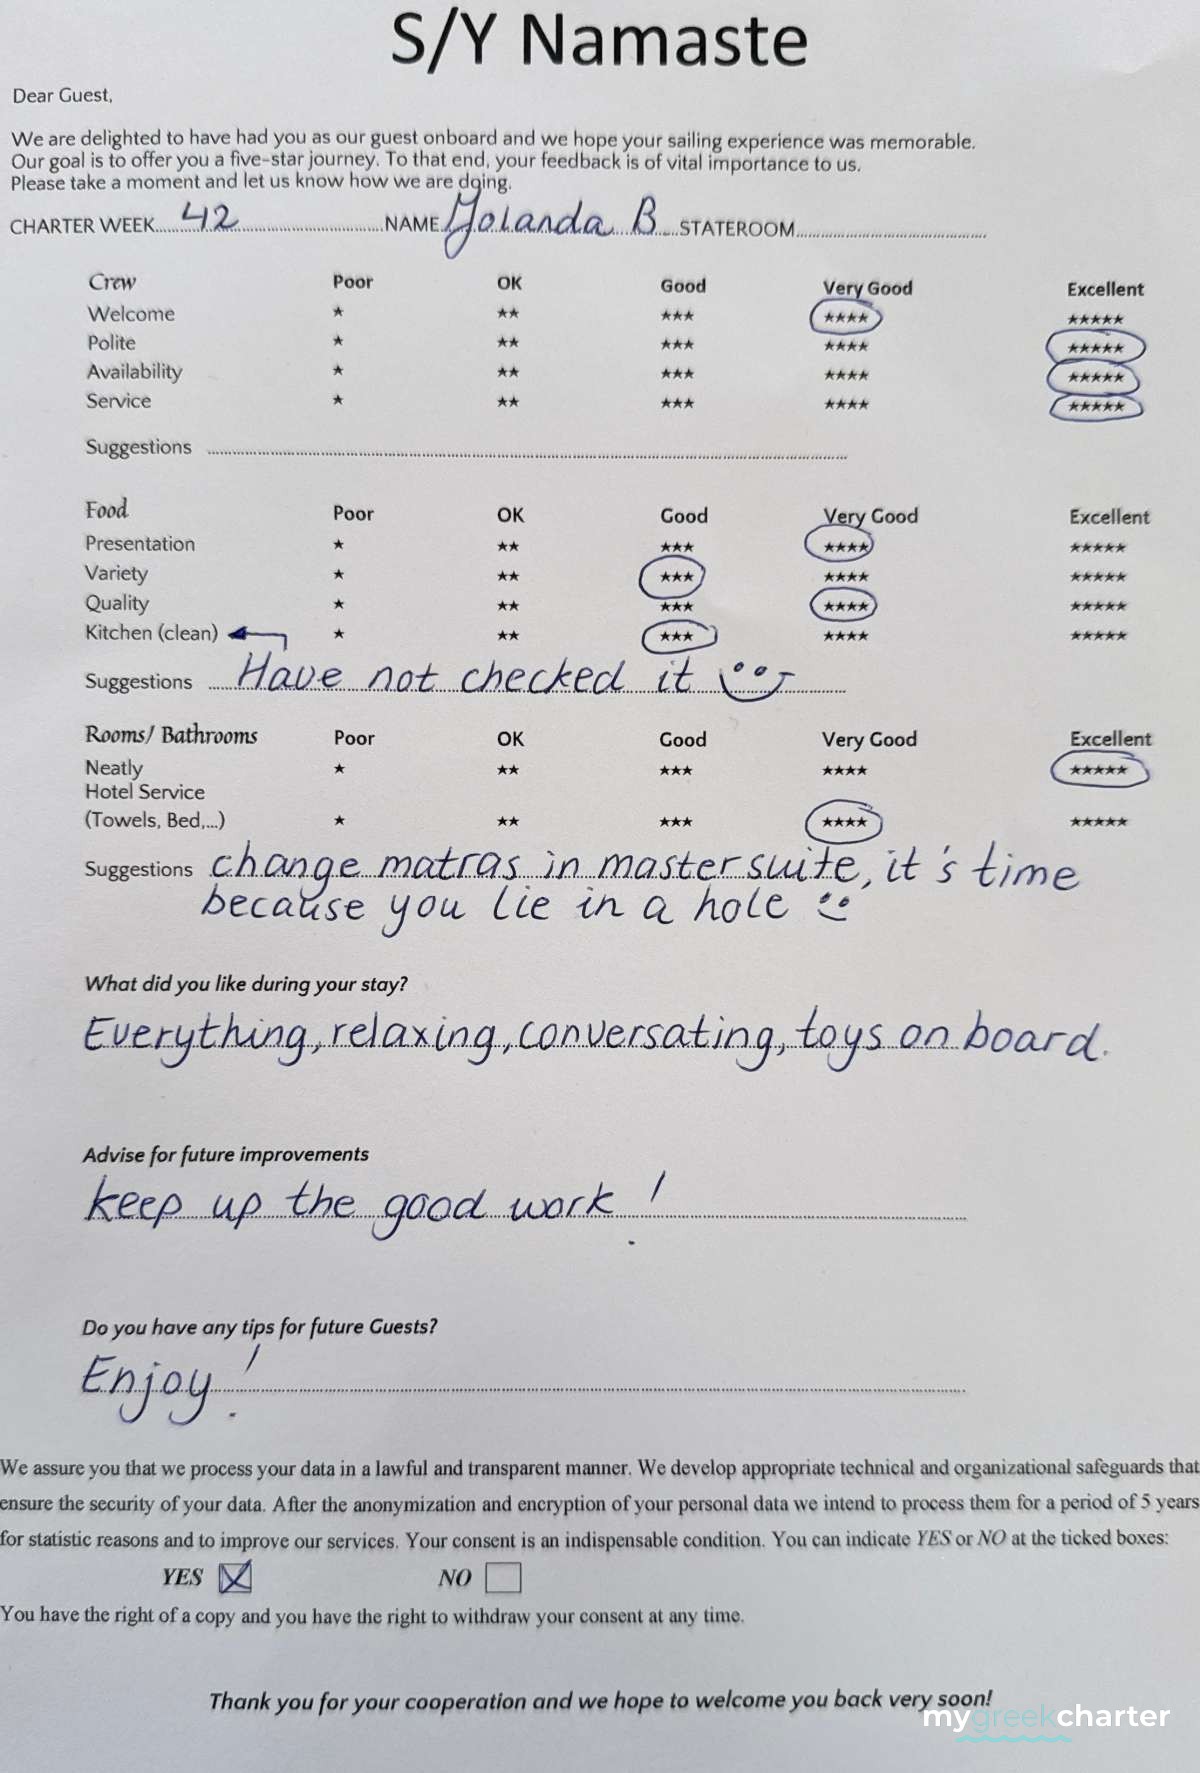 S/Y Namaste
Dear Guest,
We are delighted to have had you as our guest onboard and we hope your sailing experience was memorable.
Our goal is to offer you a five-star journey. To that end, your feedback is of vital importance to us.
Please take a moment and let us know how we are doing.
CHARTER WEEK 42 NAME Yolanda B STATEROOM
Crew Poor OK Good Very Good Excellent
Welcome ★ ★★ ★★★ ★★★★ ★★★★★
Polite ★ ★★ ★★★ ★★★★ ★★★★★
Availability ★ ★★ ★★★ ★★★★ ★★★★★
Service ★ ★★ ★★★ ★★★★ ★★★★★
Suggestions
Food Poor OK Good Very Good Excellent
Presentation ★ ★★ ★★★ ★★★★ ★★★★★
Variety ★ ★★ ★★★ ★★★★ ★★★★★
Quality ★ ★★ ★★★ ★★★★ ★★★★★
Kitchen (clean) ★ ★★ ★★★ ★★★★ ★★★★★
Suggestions Have not checked it
Rooms/ Bathrooms Poor OK Good Very Good Excellent
Neatly ★ ★★ ★★★ ★★★★ ★★★★★
Hotel Service
(Towels, Bed,...) ★ ★★ ★★★ ★★★★ ★★★★★
Suggestions change matras in master suite, it's time
because you lie in a hole
What did you like during your stay?
Everything, relaxing, conversating, toys on board.
Advise for future improvements
keep up the good work!
Do you have any tips for future Guests?
Enjoy!
We assure you that we process your data in a lawful and transparent manner. We develop appropriate technical and organizational safeguards that
ensure the security of your data. After the anonymization and encryption of your personal data we intend to process them for a period of 5 years
for statistic reasons and to improve our services. Your consent is an indispensable condition. You can indicate YES or NO at the ticked boxes:
YES NO
You have the right of a copy and you have the right to withdraw your consent at any time.
Thank you for your cooperation and we hope to welcome you back very soon!
mygreekcharter